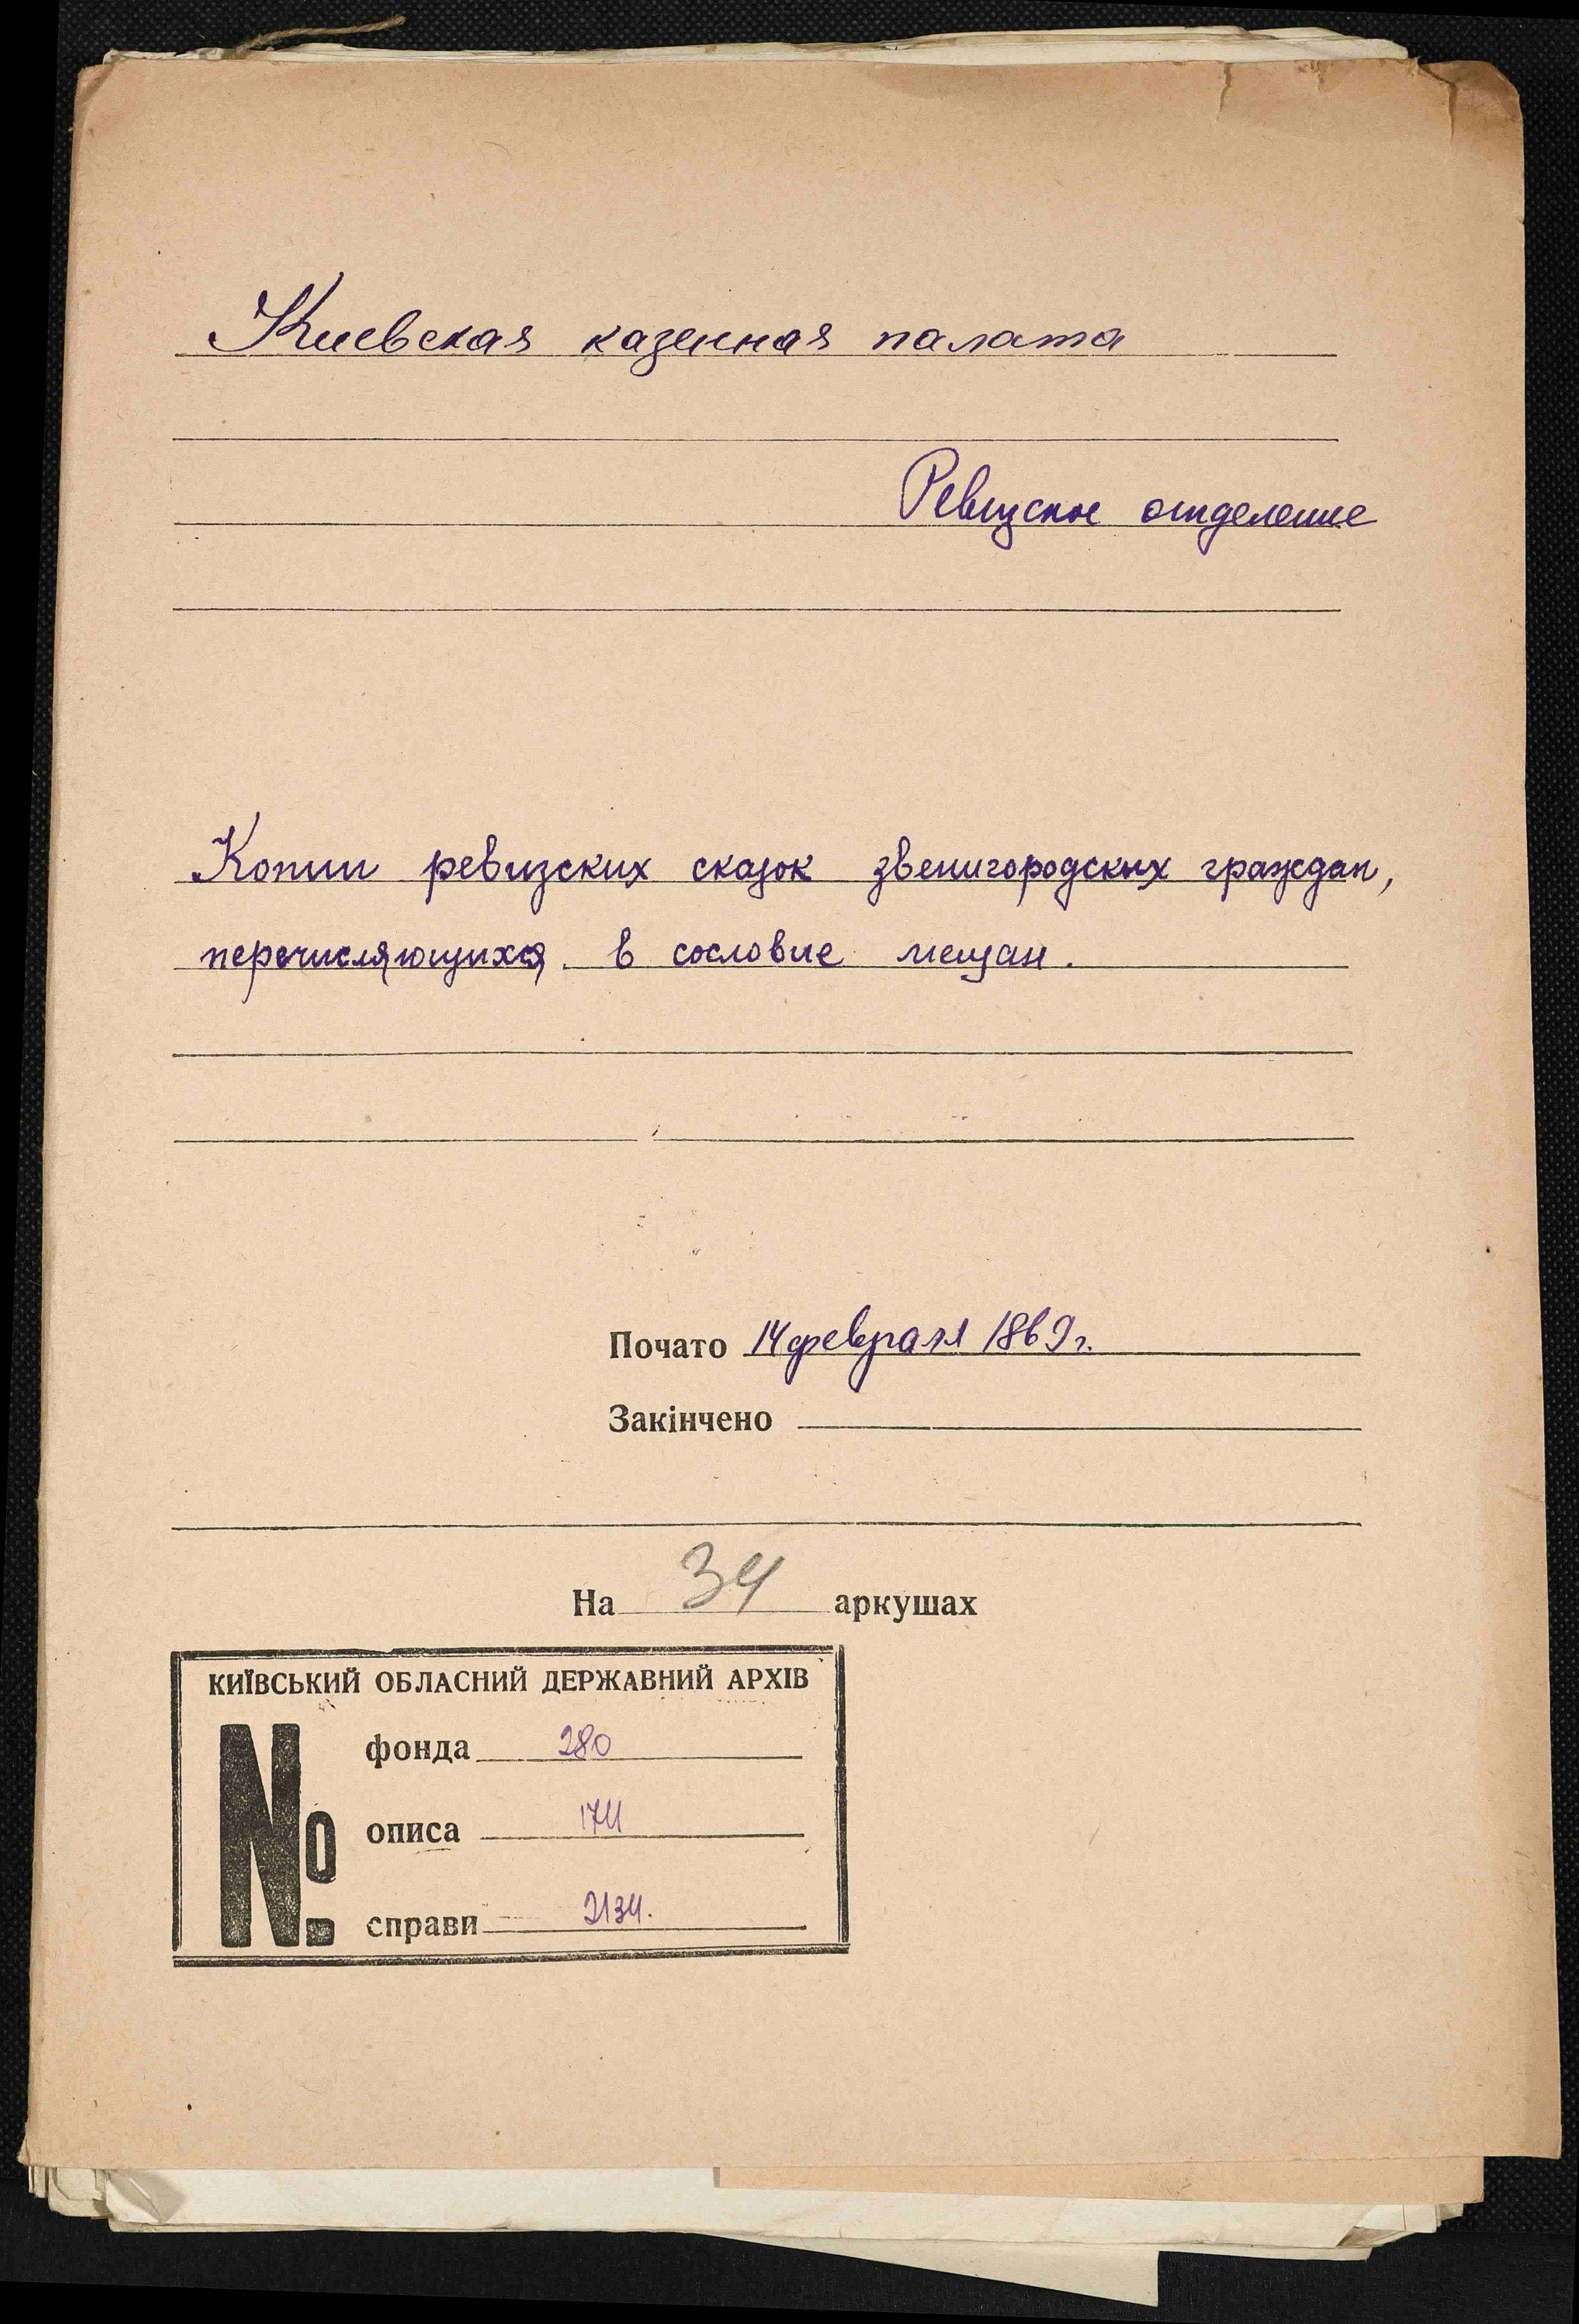 Киевская казенная палата
Ревизское отделение
Копии ревизских сказок звенигородских граждан,
перечисляющихся в сословие мещан.
Почато 14 февраля 1869 г.
Закінчено
На 34 аркушах
КИЇВСЬКИЙ ОБЛАСНИЙ ДЕРЖАВНИЙ АРХІВ
№
фонда 280
описа 174
справи 2134.